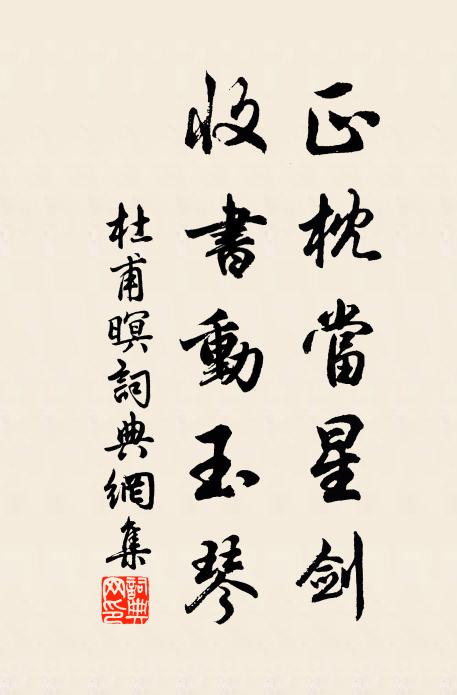 正枕當星劍
收書動玉琴
杜甫暝詞典網集
詞典網印